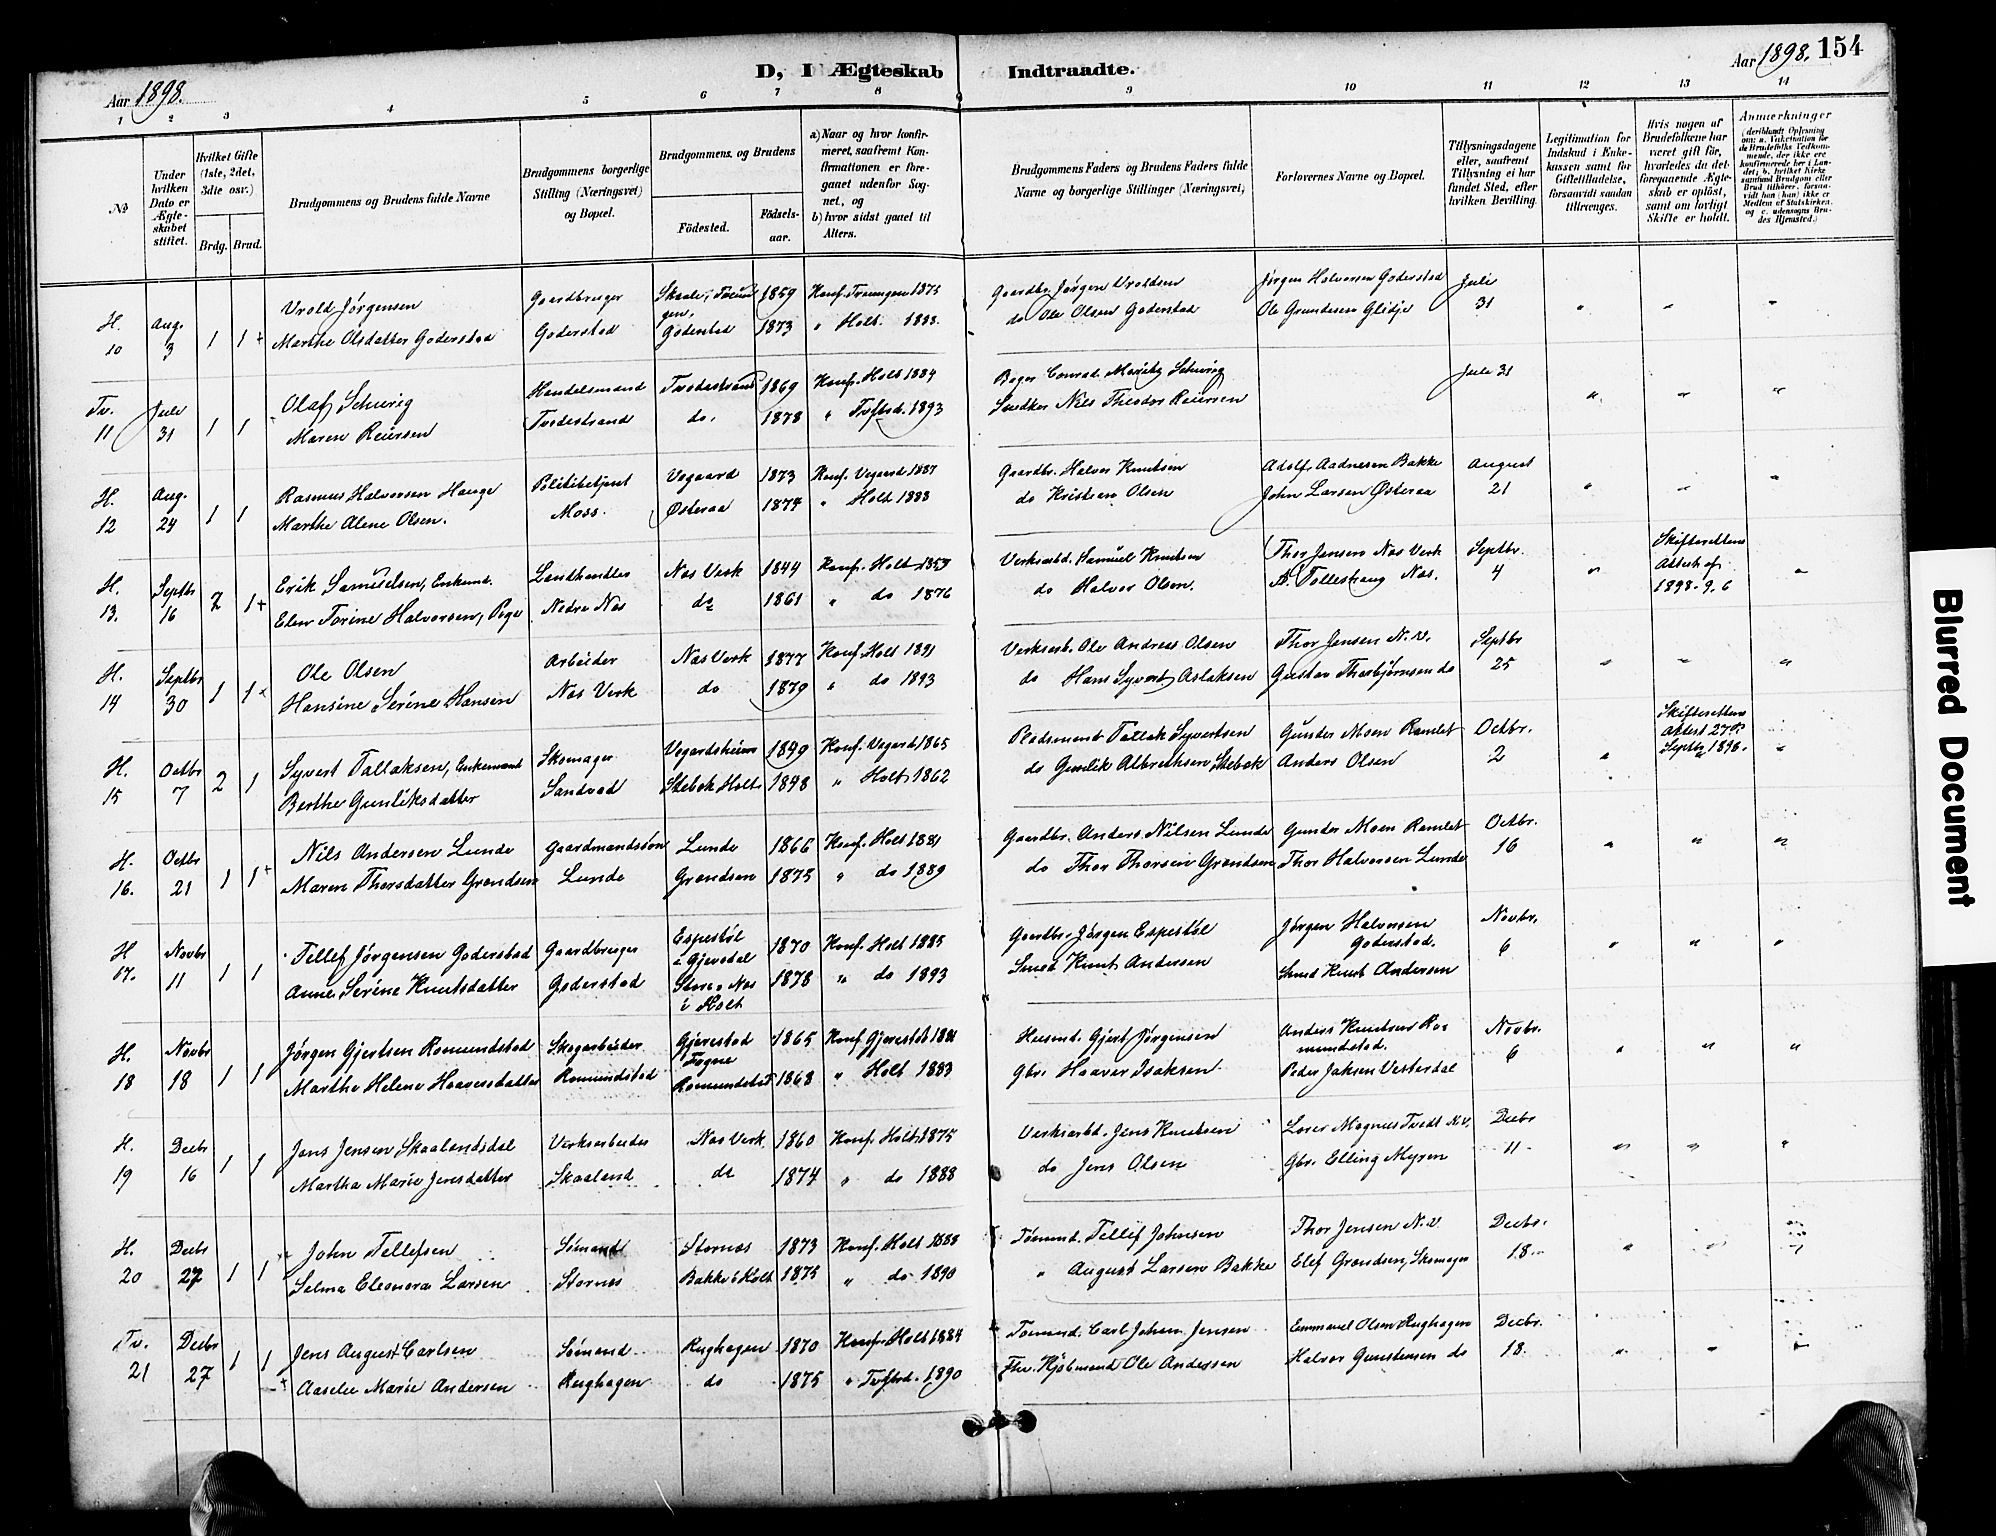 Aar 1898.
D, I Ægteskab Indtraadte.
Aar 1898. 154
1 2 3 4 5 6 7 8 9 10 11 12 13 14
№
Under hvilken Dato er Ægteskabet stiftet.
Hvilket Gifte (1ste, 2det, 3die osv.)
Brdg. Brud.
Brudgommens og Brudens fulde Navne
Brudgommens borgerlige Stilling (Næringsvei) og Bopæl.
Brudgommens, og Brudens
Fødested. Fødselsaar.
a) Naar og hvor konfirmeret, saafremt Konfirmationen er foregaaet udenfor Sognet, og
b) hvor sidst gaaet til Alters.
Brudgommens Faders og Brudens Faders fulde Navne og borgerlige Stillinger (Næringsvei)
Forlovernes Navne og Bopæl.
Tillysningsdagene eller, saafremt Tillysning ei har fundet Sted, efter hvilken Bevilling.
Legitimation for Indskud i Enkekassen samt for Giftetilladelse, forsaavidt saadan tiltrænges.
Hvis nogen af Brudefolkene har været gift før, hvorledes da det foregaaende Ægteskab er opløst, samt om lovligt Skifte er holdt.
Anmerkninger
H. 10 Aug. 3 1 1 +
Vrold Jørgensen Gaardbruger 1859 Konf. Treungen 1875 Gaardbr. Jørgen Vroldsen Jørgen Halvorsen Goderstad Juli
Marthe Olsdatter Goderstad Goderstad Goderstad 1873 " Holt. 1888. do Ole Olsen Goderstad Ole Gundersen Glidje 31
Tv. 11 Juli 31 1 1
Olaf Schurig Handelsmand Tvedestrand 1869 Konf. Holt 1884 Bager Conrad Moritz Schurig Juli 31
Maren Reiersen Tvedestrand do. 1878 " Tvestrd. 1893 Snedker Nils Theodor Reiersen
H. 12 Aug. 24 1 1
Rasmus Halvorsen Hauge Politibetjent Vegaard 1873 Konf. Vegaard 1887 Gaardbr. Halvor Knutsen Adolf Aadnesen Bakke August
Marthe Alene Olsen. Moss. Østeraa 1874 " Holt 1888 do Kristian Olsen John Larsen Østeraa 21
H. 13. Septbr 16 2 1 +
Erik Samuelsen, Enkemd. Landhandler Nas Verk 1844 Konf. Holt 1859 Verksarbd. Samuel Knutsen Thor Jensen Nas Verk Septbr. Skifterettens Attest af
Elen Torine Halvorsen, Pige Nedre Nas do 1861 " do 1876 do Halvor Olsen. Nas. 4 1898. 9. 6
H. 14 Septbr 30 1 1 +
Ole Olsen Arbeider Nas Verk 1877 Konf. Holt 1891 Verksarb. Ole Andreas Olsen Thor Jensen N. v. Septbr
Hansine Serine Hansen Nas Verk do 1879 " do 1893 do Hans Syvert Aslaksen Gustav Thorbjørnsen do 25
H. 15 Octbr 7 2 1
Syvert Tallaksen, Enkemand Skomager Vegardsheien 1849 Konf. Vegard. 1865 Pladsmand Tallak Syvertsen Gunder Moen Ramlet Octbr. Skifterettens Attest 27de Septbr 1898.
Berthe Gunliksdatter Sandvad Stebek Holt 1848 " Holt 1862 do Gunlik Albrechsen Stebek Anders Olsen 2
H. 16. Octbr 21 1 1 +
Nils Andersen Lunde Gaardmandssøn Lunde 1866 Konf. Holt 1881 Gaardbr. Anders Nilsen Lunde Gunder Moen Ramlet Octbr.
Maren Thorsdatter Grendsen Lunde Grendsen 1875 " do 1889 do Thor Thorsen Grendsen Thor Halvorsen Lunde 16
H 17. Novbr 11 1 1
Tellef Jørgensen Goderstad Gaardbruger Espestøl i Gjevedal 1870 Konf. Holt 1885 Gaardbr. Jørgen Espestøl Jørgen Halvorsen Goderstad. Novbr.
Anne Serine Knutsdatter Goderstad Store Nas i Holt 1878 " do 1893 Smed Knut Andersen Smed Knut Andersen 6
H. 18 Novbr 18 1 1
Jørgen Gjertsen Romundstad Skogarbeider Gjerestad 1865 Konf Gjerestad 1881 Husmd. Gjert Jørgensen Anders Knutsen Romundstad. Novbr.
Marthe Helene Haaversdatter Romundstad Romundstad 1868 " Holt 1883 Gbr. Haaver Isaksen Peder Jaksen Vesterdal 6
H. 19 Decbr 16 1 1
Jens Jensen Skaalandsdal Verksarbeider Nas Verk 1860 Konf. Holt 1875 Verksarbd. Jens Knutsen Lærer Magnus Tvedt N. V. Decbr
Martha Marie Jensdatter Skaaland do 1874 " do 1888 do Jens Olsen Gbr. Elling Myren 11
H. 20 Decbr 27 1 1
John Tellefsen Sømand Stornes 1873 Konf. Holt 1888 Tømmd. Tellef Johnsen Thor Jensen N. v Decbr.
Selma Eleonora Larsen Stornes Bakke i Holt 1875 " do 1890 " August Larsen Bakke Elef Grendsen, Skomager 18
Tv. 21 Decbr 27 1 1 +
Jens August Carlsen Sømand Rughagen 1870 Konf. Holt 1884 Tømmd. Carl Johan Jensen Emmanuel Olsen Rughagen Decbr.
Aaselie Marie Andersen Rughagen do 1875 " Tvestrd. 1890 Fhv. Kjøbmand Ole Andersen Halvor Gunstensen do 18
Blurred Document